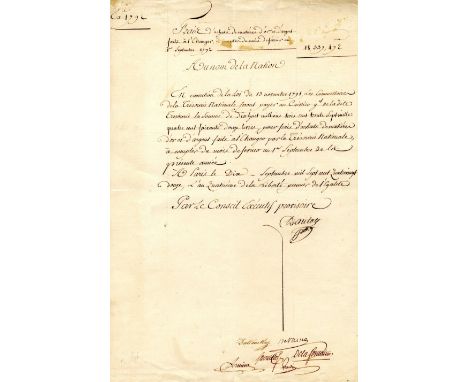 1792
d'achats de matières d'or et d'argent
faits à l'Etranger, à compter du mois de février au
1er Septembre 1792
18 337,472
Au nom de la Nation
En exécution de la Loi du 13 novembre 1791, Les Commissaires
de la Trésorerie Nationale, feront payer au Caissier gal de la dite
Trésorerie la Somme de Dix huit millions trois cent trente Sept mille
quatre cent soixante douze livres, pour frais d'achats de matières
d'or et d'argent faits à l'Etranger par la Trésorerie Nationale,
à compter du mois de février au 1er Septembre de la
présente année
A Paris le Dix Septembre mil Sept cent Quatre vingt
douze, L'an Quatrième de la Liberté, premier de l'égalité
Par Le Conseil Exécutif provisoire
Danton